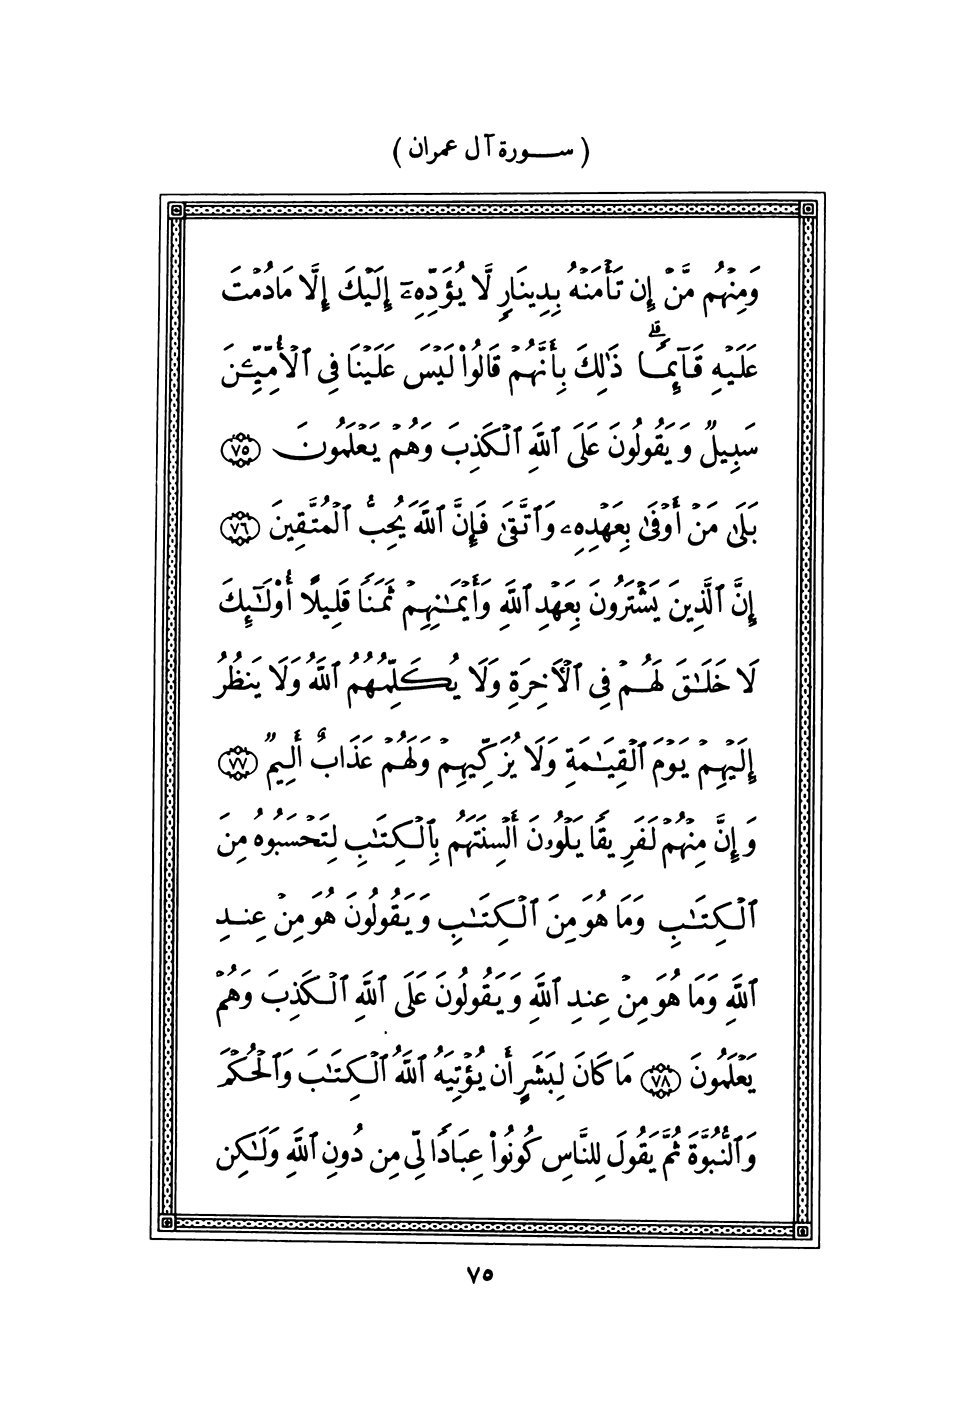 ( سورة آل عمران )
وَمِنْهُم مَّنْ إِن تَأْمَنْهُ بِدِينَارٍ لَّا يُؤَدِّهِۦٓ إِلَيْكَ إِلَّا مَادُمْتَ
عَلَيْهِ قَآئِمًا ۗ ذَٰلِكَ بِأَنَّهُمْ قَالُوا۟ لَيْسَ عَلَيْنَا فِى ٱلْأُمِّيِّـۧنَ
سَبِيلٌ وَيَقُولُونَ عَلَى ٱللَّهِ ٱلْكَذِبَ وَهُمْ يَعْلَمُونَ ﴿٧٥﴾
بَلَىٰ مَنْ أَوْفَىٰ بِعَهْدِهِۦ وَٱتَّقَىٰ فَإِنَّ ٱللَّهَ يُحِبُّ ٱلْمُتَّقِينَ ﴿٧٦﴾
إِنَّ ٱلَّذِينَ يَشْتَرُونَ بِعَهْدِ ٱللَّهِ وَأَيْمَـٰنِهِمْ ثَمَنًا قَلِيلًا أُو۟لَـٰٓئِكَ
لَا خَلَـٰقَ لَهُمْ فِى ٱلْأَخِرَةِ وَلَا يُكَلِّمُهُمُ ٱللَّهُ وَلَا يَنظُرُ
إِلَيْهِمْ يَوْمَ ٱلْقِيَـٰمَةِ وَلَا يُزَكِّيهِمْ وَلَهُمْ عَذَابٌ أَلِيمٌ ﴿٧٧﴾
وَإِنَّ مِنْهُمْ لَفَرِيقًا يَلْوُۥنَ أَلْسِنَتَهُم بِٱلْكِتَـٰبِ لِتَحْسَبُوهُ مِنَ
ٱلْكِتَـٰبِ وَمَا هُوَ مِنَ ٱلْكِتَـٰبِ وَيَقُولُونَ هُوَ مِنْ عِندِ
ٱللَّهِ وَمَا هُوَ مِنْ عِندِ ٱللَّهِ وَيَقُولُونَ عَلَى ٱللَّهِ ٱلْكَذِبَ وَهُمْ
يَعْلَمُونَ ﴿٧٨﴾ مَاكَانَ لِبَشَرٍ أَن يُؤْتِيَهُ ٱللَّهُ ٱلْكِتَـٰبَ وَٱلْحُكْمَ
وَٱلنُّبُوَّةَ ثُمَّ يَقُولَ لِلنَّاسِ كُونُوا۟ عِبَادًا لِّى مِن دُونِ ٱللَّهِ وَلَـٰكِن
٧٥